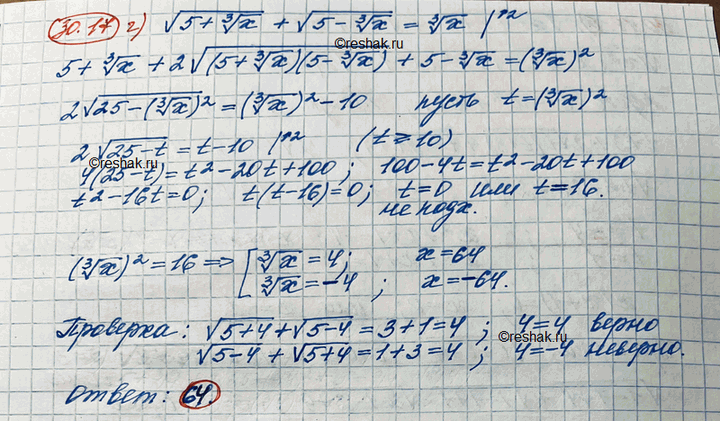 30.17 г) √(5+∛x) + √(5-∛x) = ∛x |↑2
©reshak.ru
5+∛x + 2√((5+∛x)(5-∛x)) + 5-∛x = (∛x)²
2√(25-(∛x)²) = (∛x)² - 10 пусть t = (∛x)²
2√(25-t) = t-10 |↑2 (t ≥ 10)
©reshak.ru
4(25-t) = t²-20t+100 ; 100-4t = t²-20t+100
t²-16t=0; t(t-16)=0; t=0 или t=16.
не подх.
(∛x)² = 16 ⇒ [ ∛x = 4; x=64
∛x = -4 ; x=-64.
Проверка: √(5+4) + √(5-4) = 3+1=4 ; 4=4 верно
©reshak.ru
√(5-4) + √(5+4) = 1+3=4 ; 4=-4 неверно.
Ответ: 64.